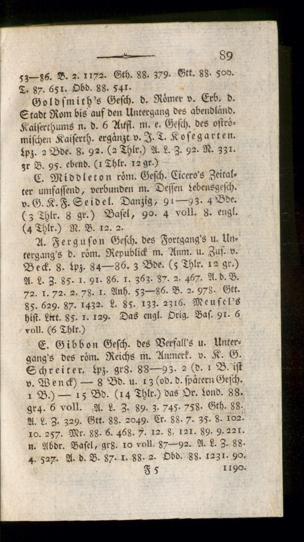 89
53—86. B. 2. 1172. Gth. 88. 379. Gtt. 88. 500.
T. 87. 651. Obd. 88. 541.
Goldsmith's Gesch. d. Römer v. Erb. d.
Stadt Rom bis auf den Untergang des abendländ.
Kaiserthums n. d. 6 Aufl. m. e. Gesch. des oströ-
mischen Kaiserth. ergänzt v. J. T. Kosegarten.
Lpz. 2 Bde. 8. 92. (2 Thlr.) A. L. Z. 92. N. 331.
3r B. 95. ebend. (1 Thlr. 12 gr.)
C. Middleton röm. Gesch. Cicero's Zeital-
ter umfassend, verbunden m. Dessen Lebensgesch.
v. G. K. F. Seidel. Danzig, 91—93. 4 Bde.
(3 Thlr. 8 gr.) Basel, 90. 4 voll. 8. engl.
(4 Thlr.) N. B. 12. 2.
A. Ferguson Gesch. des Fortgang's u. Un-
tergang's d. röm. Republick m. Anm. u. Zus. v.
Beck. 8. Lpz. 84—86. 3 Bde. (5 Thlr. 12 gr.)
A. L. Z. 85. 1. 91. 86. 1. 363. 87. 2. 467. A. d. B.
72. 1. 72. 2. 78. 1. Anh. 53—86. B. 2. 978. Gtt.
85. 629. 87. 1432. L. 85. 133. 2316. Meusel's
hist. Litt. 85. 1. 129. Das engl. Orig. Bas. 91. 6
voll. (6 Thlr.)
E. Gibbon Gesch. des Verfall's u. Unter-
gang's des röm. Reichs m. Anmerk. v. K. G.
Schreiter. Lpz. gr8. 88—93. 2 (d. 1 B. ist
v. Wenck) — 8 Bd. u. 13 (od. d. späteren Gesch.
1 B.) — 15 Bd. (14 Thlr.) das Or. Lond. 88.
gr4. 6 voll. A. L. Z. 89. 3. 745. 758. Gth. 88.
A. L. Z. 329. Gtt. 88. 2049. Er. 88. 7. 35. 8. 102.
10. 257. Mr. 88. 6. 468. 7. 12. 8. 121. 89. 9. 221.
n. Abdr. Basel, gr8. 10 voll. 87—92. A. L. Z. 88.
4. 527. A. d. B. 87. 1. 88. 2. Obd. 88. 1231. 90.
F 5 1190.